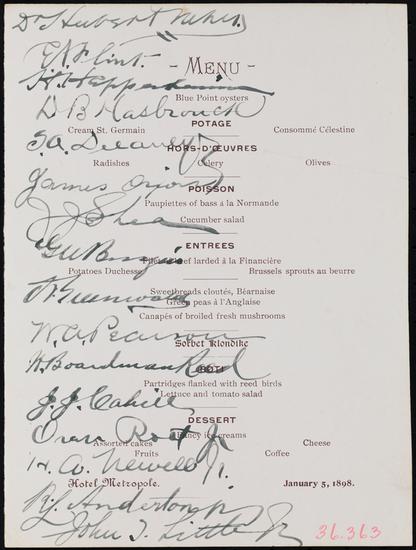 Dr Hubert
E.A. Flint.
- MENU -
Blue Point oysters
D B Hasbrouck
POTAGE
Cream St. Germain Consommé Célestine
HORS-D'ŒUVRES
Radishes Celery Olives
James
POISSON
Paupiettes of bass á la Normande
J J Shea
Cucumber salad
ENTREES
of larded à la Financière
Potatoes Duchesse Brussels sprouts au beurre
Sweetbreads cloutés, Béarnaise
Green peas à l'Anglaise
Canapés of broiled fresh mushrooms
W. A. Pearson
Sorbet Klondike
W. Boardman Reed
ROTI
Partridges flanked with reed birds
Lettuce and tomato salad
J. J. Cahill
DESSERT
Root Jr
Assorted cakes Fancy ice creams Cheese
Fruits Coffee
H. A. Newell Jr.
Hotel Metropole. January 5, 1898.
R. J. Anderton Jr
John T. Little Jr
36.363